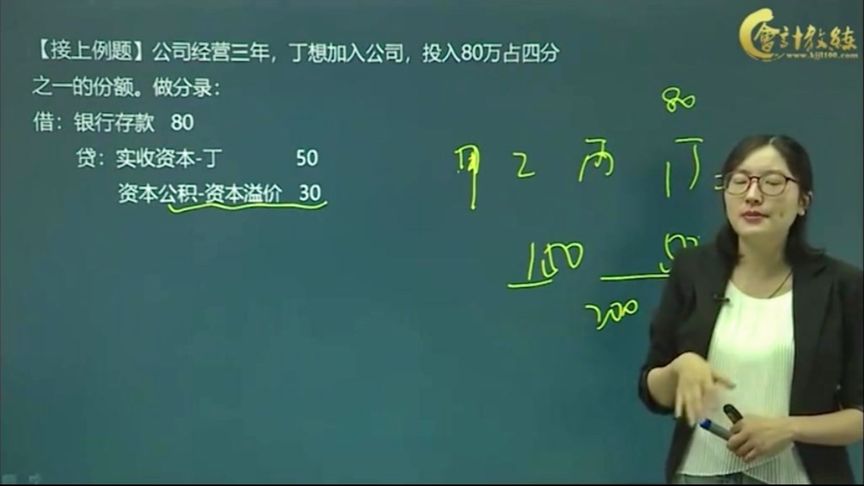 【接上例题】公司经营三年，丁想加入公司，投入80万占四分
之一的份额。做分录：
借：银行存款 80
贷：实收资本-丁 50
资本公积-资本溢价 30
會計教练
www.kjjl100.com
80
甲 乙 丙 丁
150
200